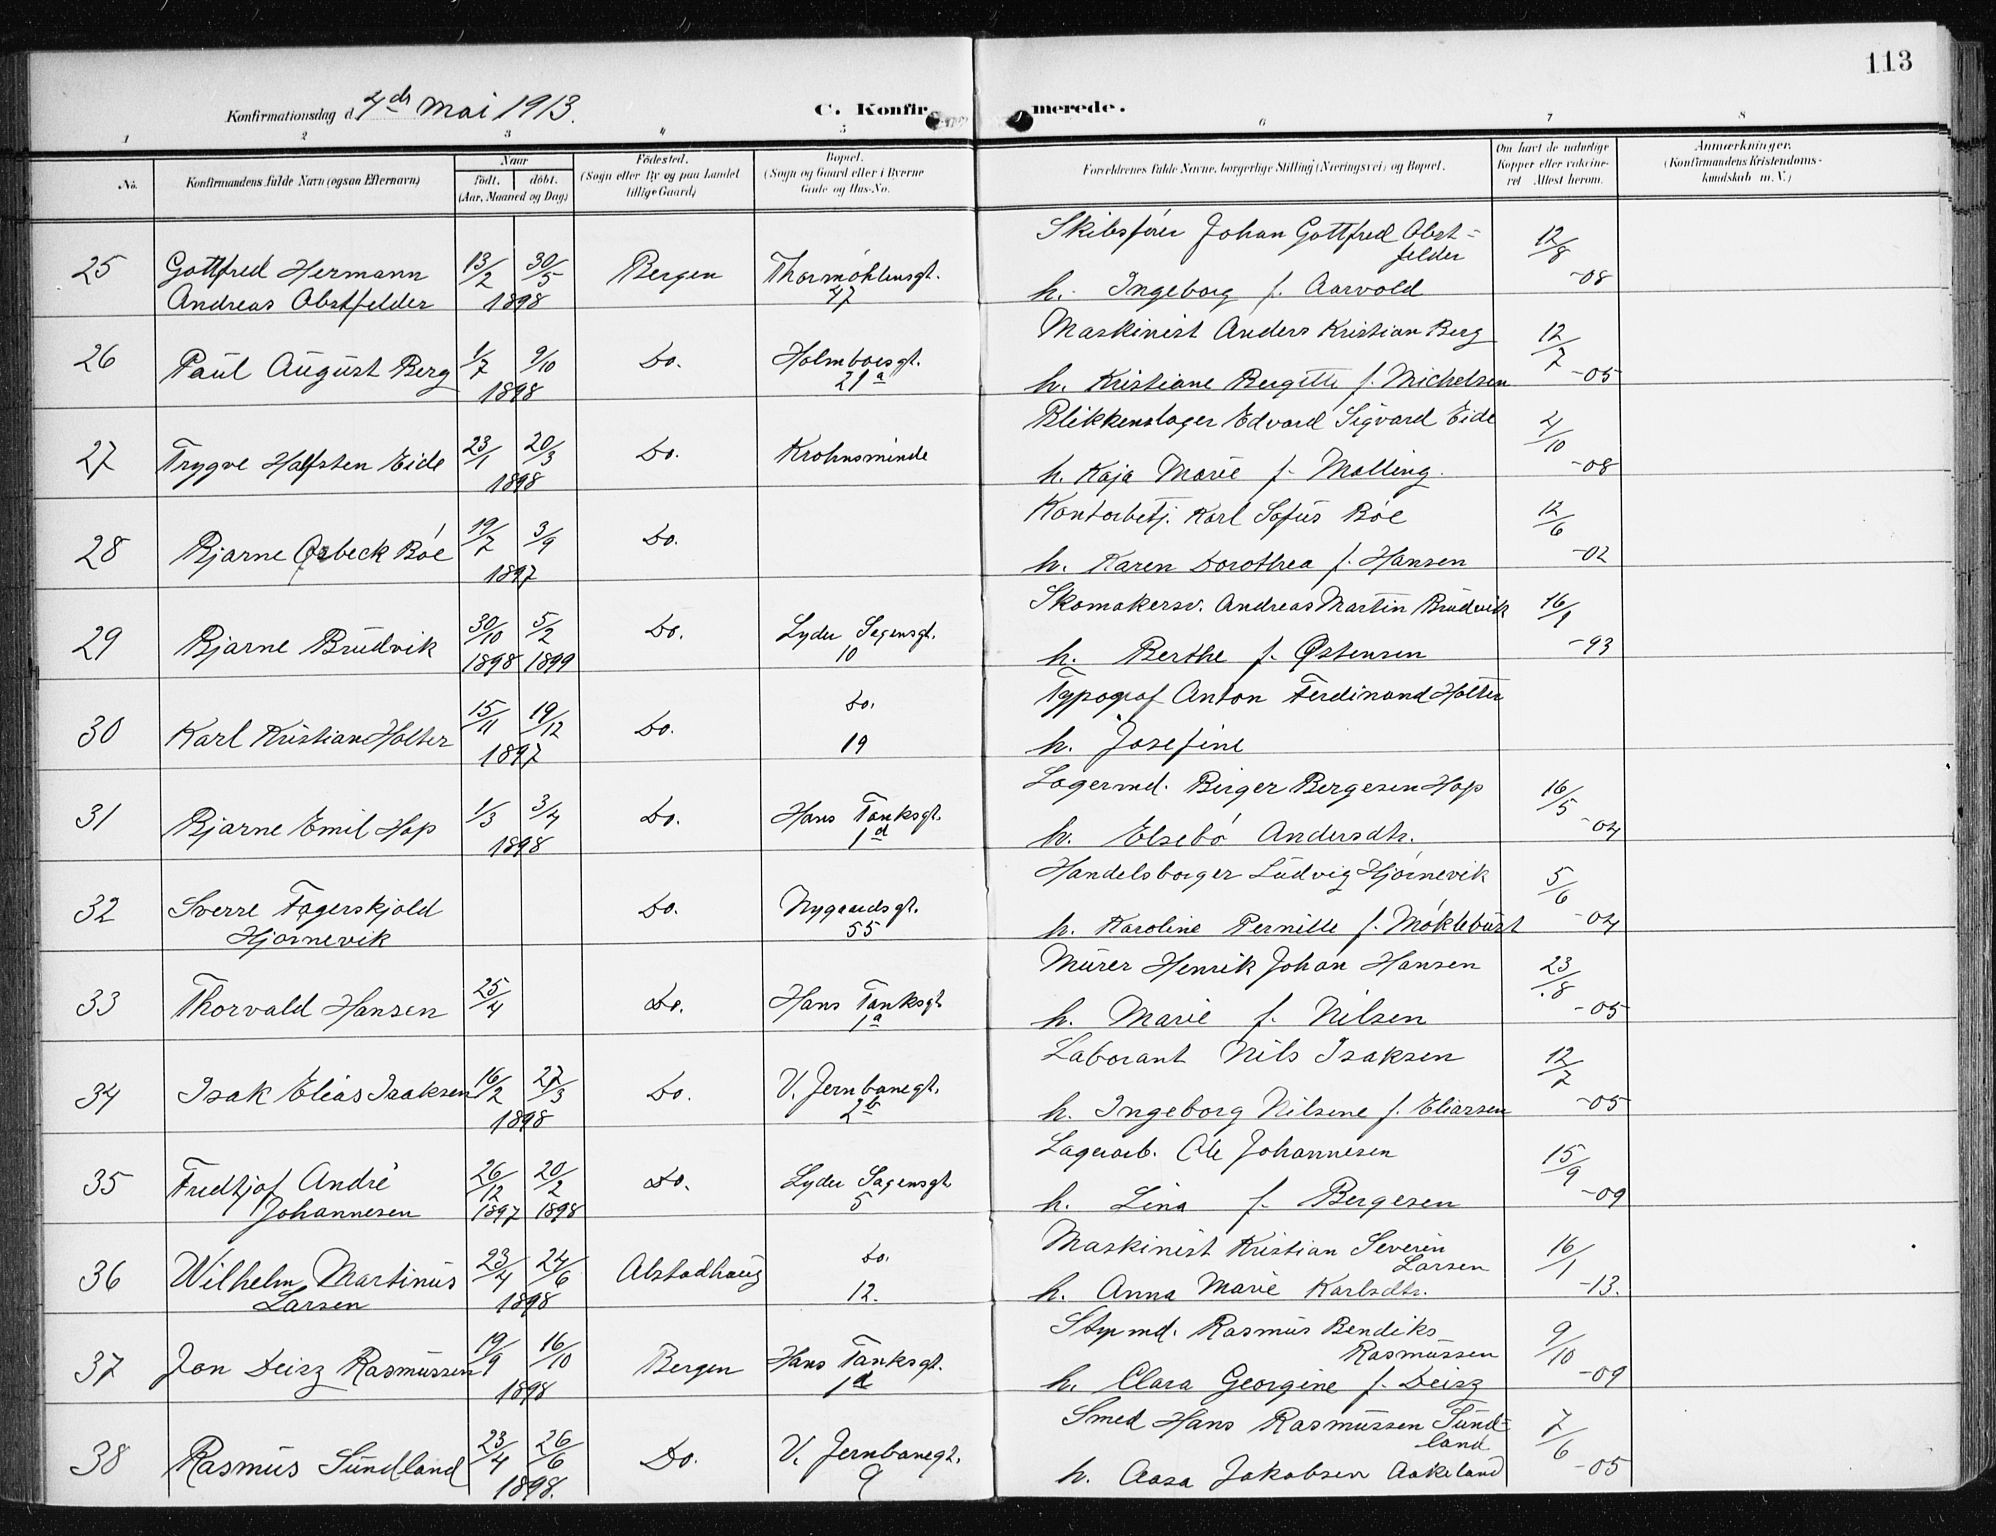 113
Konfirmationsdag d. 4de Mai 1913.
C. Konfirmerede.
1 2 3 4 5 6 7 8
No. Konfirmandens fulde Navn (ogsaa Efternavn)
Naar
födt. döbt.
(Aar, Maaned og Dag)
Födested.
(Sogn eller By og paa Landet
tillige Gaard)
Bopæl.
(Sogn og Gaard eller i Byerne
Gade og Hus-No.
Forældrenes fulde Navne, borgerlige Stilling (Næringsvei) og Bopæl.
Om havt de naturlige
Kopper eller vaccine-
ret Attest herom.
Anmærkninger.
(Konfirmandens Kristendoms-
kundskab m. V.)
25 Gottfred Hermann 13/2 30/5 Bergen Thormöhlensgt. Skibsfører Johan Gottfred Obst- 12/8
felder
Andreas Obstfelder 1898 47 h. Ingeborg f. Aarvold -08
26 Paul August Berg 1/7 9/10 Do. Holmboesgt. Maskinist Anders Kristian Berg 12/7
1898 21a h. Kristiane Bergitte f. Michelsen -05
27 Trygve Halfsten Eide 23/1 20/3 Do. Krohnsminde Blikkenslager Edvard Sigvard Eide 4/10
1898 h. Kaja Marie f. Malling. -08
28 Bjarne Ørbeck Böe 19/7 3/9 Do. Kontorbetj. Karl Sofus Böe 12/6
1897 h. Karen Dorothea f. Hansen -02
29 Bjarne Brudvik 30/10 5/2 Do. Lyder Sagensgt. Skomakersv. Andreas Martin Brudvik 16/9
1898 1899 10 h. Berthe f. Østensen -93
30 Karl Kristian Holter 15/11 19/12 Do. Do. Typograf Anton Ferdinand Holter
1897 19 h. Josefine
31 Bjarne Emil Hop 1/3 3/4 Do. Hans Tanksgt. Lagermd. Birger Bergesen Hop 16/5
1898 1d h. Elsebö Andersdtr. -04
32 Sverre Fagerskjold Do. Nygaardsgt. Handelsborger Ludvig Hjørnevik 5/6
Hjørnevik 55 h. Karoline Pernille f. Möklebust -04
33 Thorvald Hansen 25/4 Do. Hans Tanksgt. Murer Henrik Johan Hansen 23/8
1a h. Marie f. Nilsen -05
34 Isak Elias Isaksen 16/2 27/3 Do. V. Jernbanegt. Laborant Nils Isaksen 12/7
1898 2b h. Ingeborg Nilsine f. Eliassen -05
35 Fredtjof André 26/12 20/2 Do. Lyder Sagensgt. Lagerarb. Ole Johannesen 15/9
Johannesen 1897 1898 5 h. Lina f. Bergesen -09
36 Wilhelm Martinus 23/4 24/6 Alstadhaug Do. Maskinist Kristian Severin 16/1
Larsen
Larsen 1898 12. h. Anna Marie Karlsdtr. -13.
37 Jon Deisz Rasmussen 19/9 16/10 Bergen Hans Tanksgt. Styrmd. Rasmus Bendiks 9/10
Rasmussen
1898 1d h. Clara Georgine f. Deisz -09
38 Rasmus Sundland 23/4 26/6 Do. V. Jernbanegt. Smed Hans Rasmussen Sund- 7/6
land
1898. 9 h. Aasa Jakobsen Aakeland -05